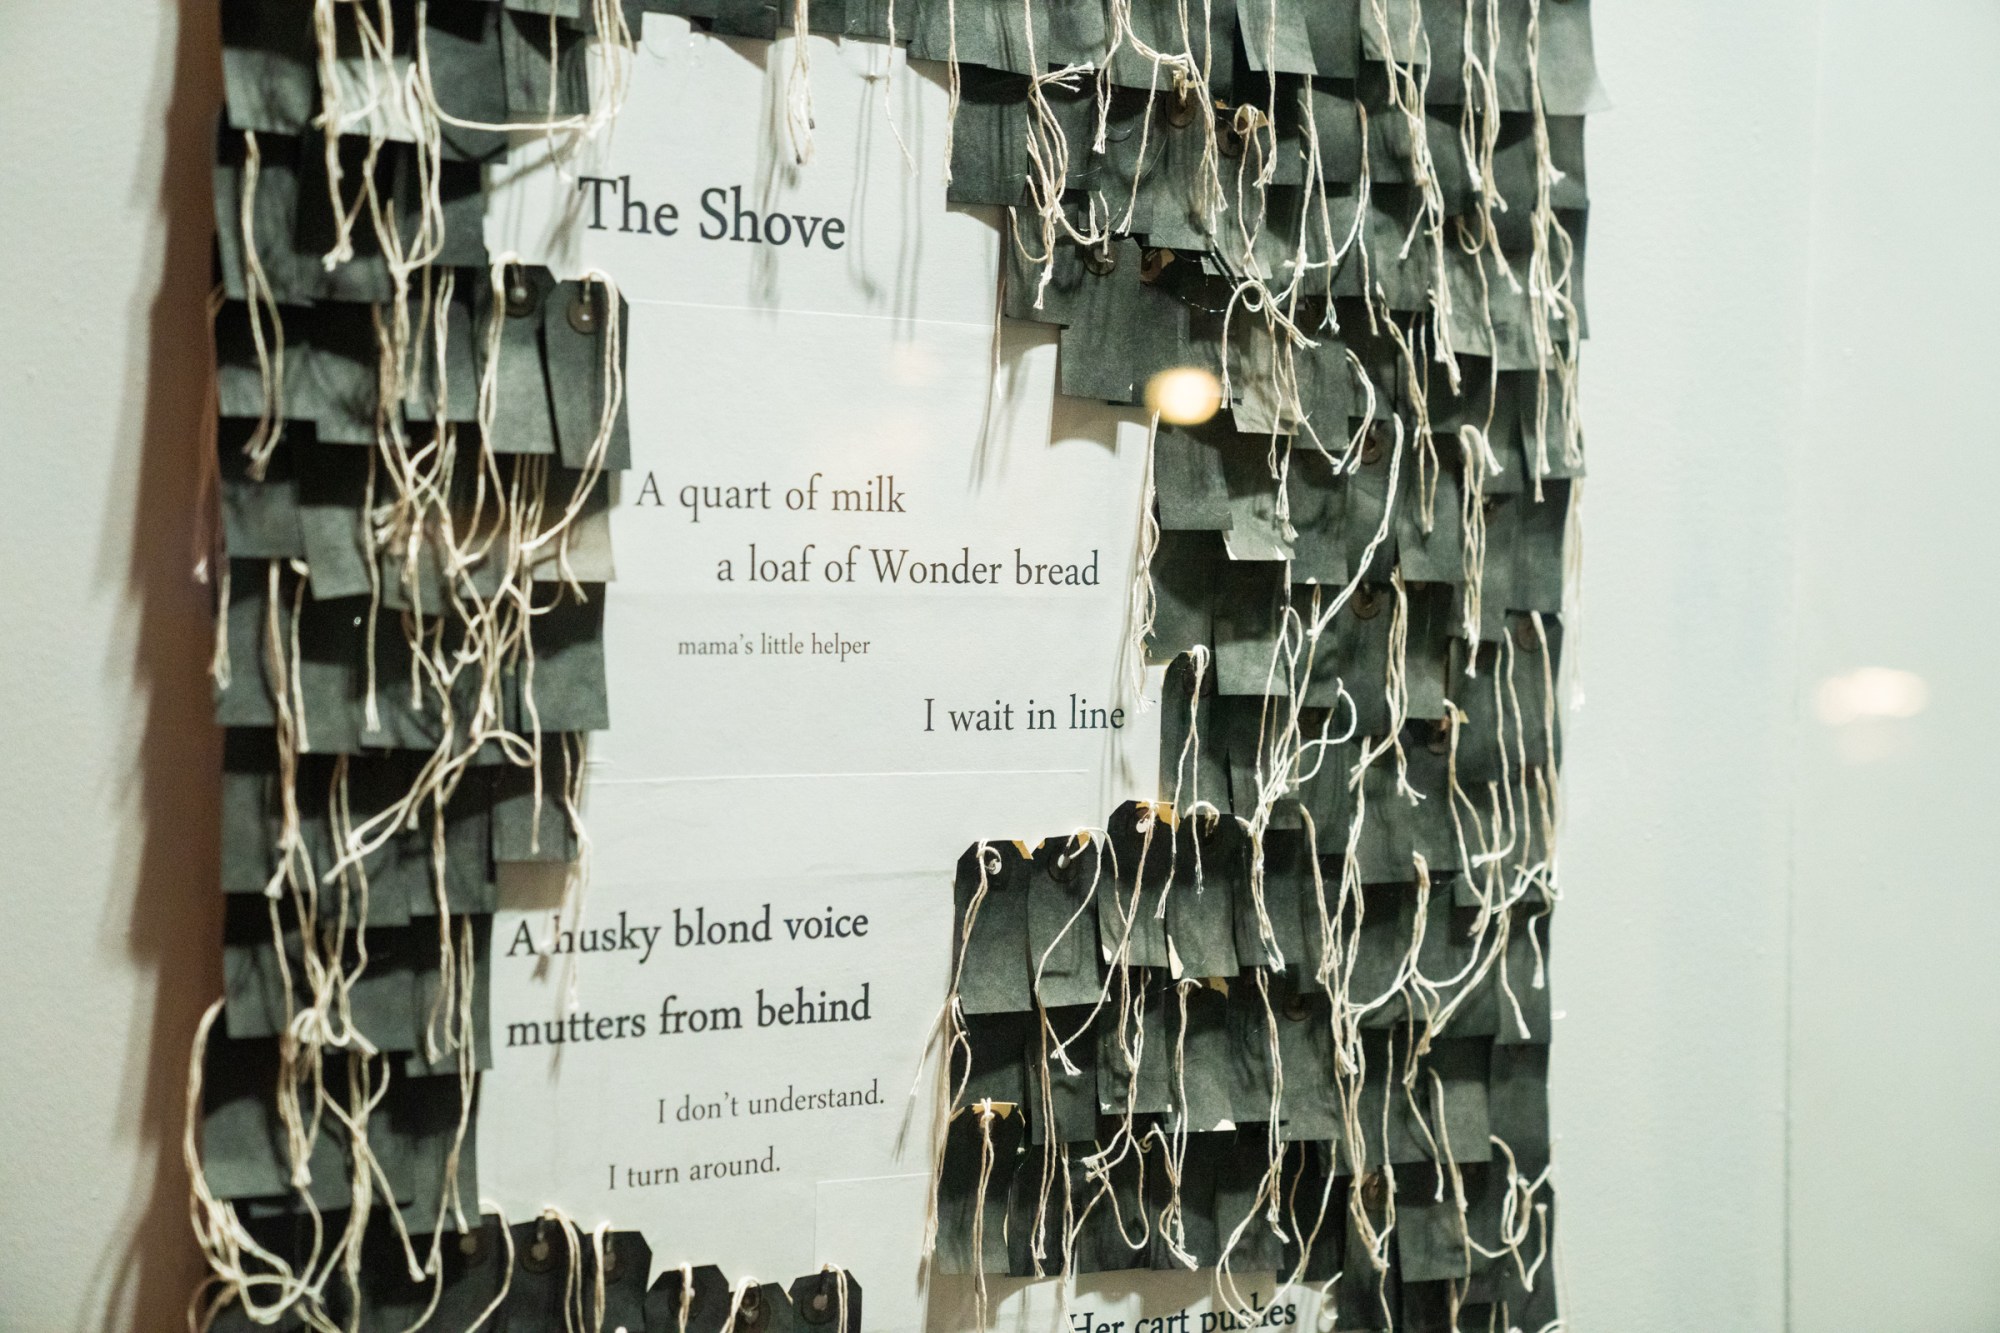 The Shove
A quart of milk
a loaf of Wonder bread
mama's little helper
I wait in line
A husky blond voice
mutters from behind
I don't understand.
I turn around.
Her cart pushes